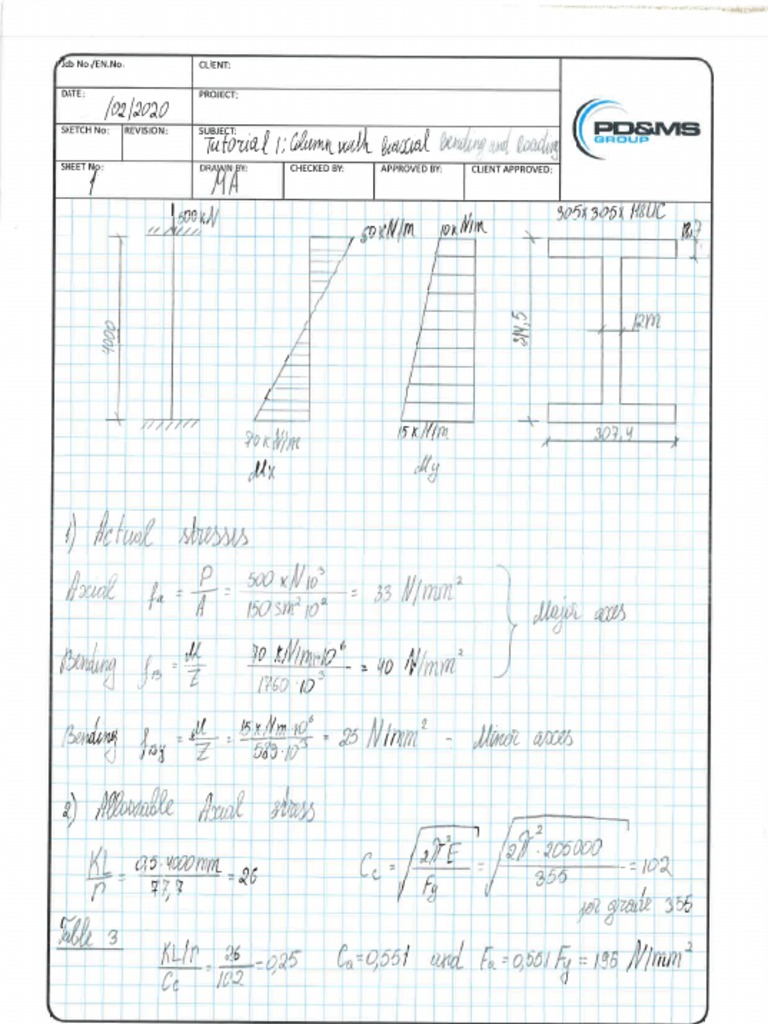 Job No./EN.No. CLIENT:
DATE: /02/2020 PROJECT:
SKETCH No: REVISION: SUBJECT: Tutorial 1: Column with biaxial bending and loading
SHEET No: 1 DRAWN BY: MA CHECKED BY: APPROVED BY: CLIENT APPROVED:
PD&MS
GROUP
500kN 50 kN/m 10 kN/m 305x305x118UC
18,7
4000 314,5 12m
70 kN/m 15 kN/m 307,4
Mx My
1) Actual stresses
Axial fa = P/A = 500 kN 10³ / 150 sm² 10² = 33 N/mm² } Major axes
Bending fB = M/Z 70 kN/m·10⁶ / 1760·10³ = 40 N/mm²
Bending fBy = M/Z = 15 kNm·10⁶ / 589·10³ = 25 N/mm² - Minor axes
2) Allowable Axial stress
KL/r = 0,5·4000mm / 77,7 = 26 Cc = √(2π²E / Fy) = √(2π²·205000 / 355) = 102
for grade 355
Table 3
KL/r / Cc = 26/102 = 0,25 Ca = 0,551 and Fa = 0,551 Fy = 195 N/mm²